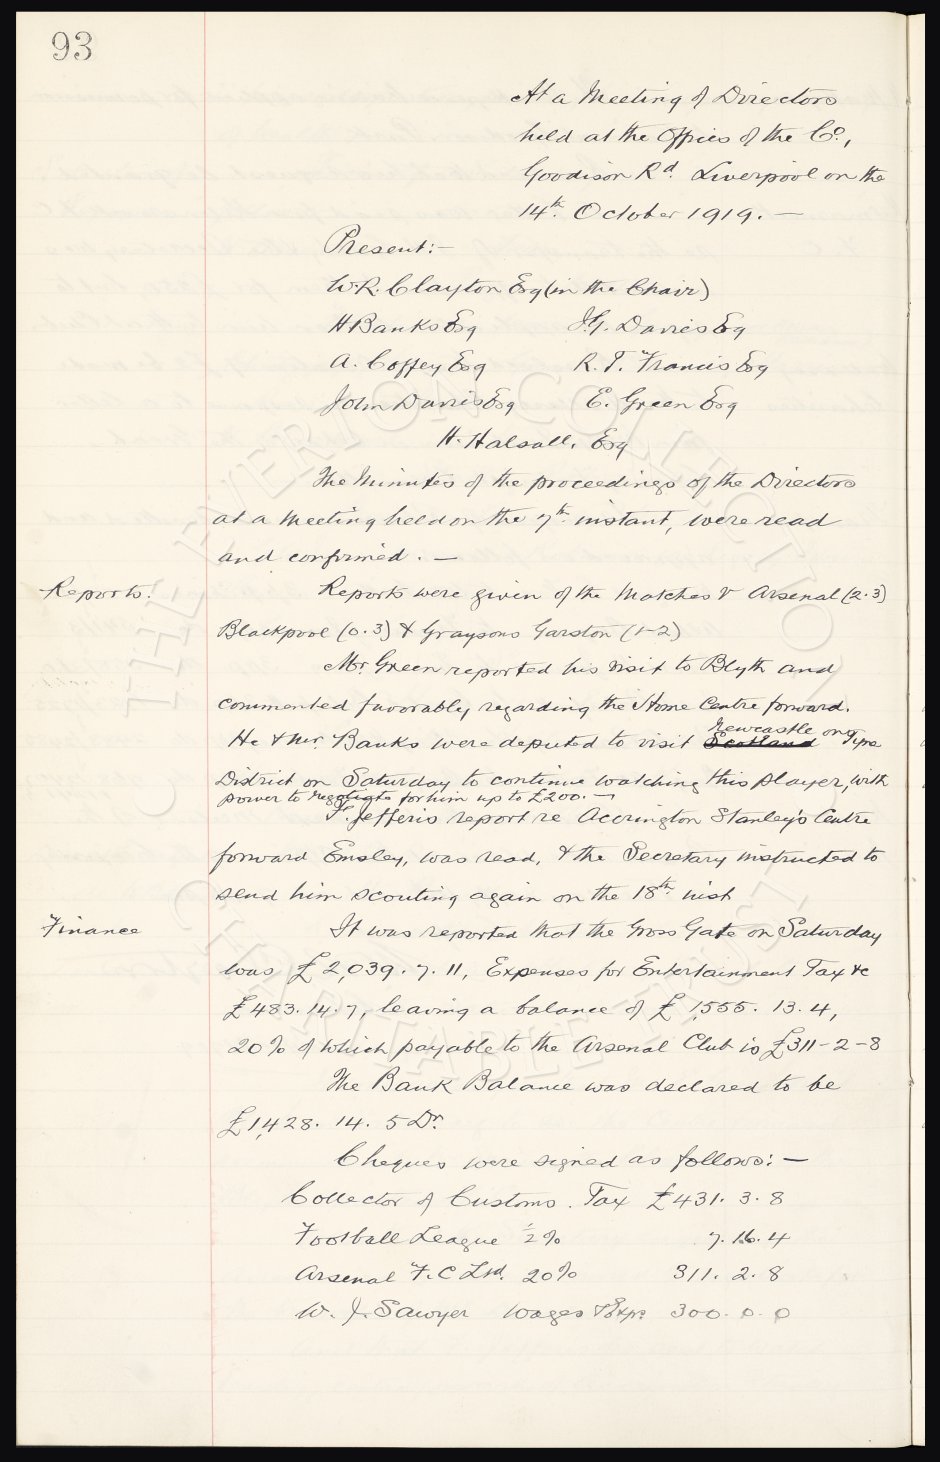 93
At a Meeting of Directors
held at the Offices of the Co.,
Goodison Rd. Liverpool on the
14th. October 1919. —
Present:—
W.R. Clayton Esq (in the Chair)
H Banks Esq J.G. Davies Esq
A. Coffey Esq R. T. Francis Esq
John Davies Esq E. Green Esq
H. Halsall. Esq
The Minutes of the proceedings of the Directors
at a Meeting held on the 7th. instant, were read
and confirmed. —
Reports. Reports were given of the Matches v Arsenal (2.3)
Blackpool (0.3) & Graysons Garston (1-2)
Mr. Green reported his visit to Blyth and
commented favorably, regarding the Home Centre forward.
Newcastle on
He & Mr. Banks were deputed to visit Scotland Tyne
District on Saturday to continue watching this player, with
power to negotiate for him up to £200. —
F. Jefferis report re Accrington Stanley's Centre
forward Emsley, was read, & the Secretary instructed to
send him scouting again on the 18th. inst
Finance It was reported that the Gross Gate on Saturday
was £2,039. 7. 11, Expenses for Entertainment Tax &c
£483. 14. 7, leaving a balance of £1,555. 13. 4,
20% of which payable to the Arsenal Club is £311-2-8
The Bank Balance was declared to be
£1,428. 14. 5 Dr.
Cheques were signed as follows:—
Collector of Customs. Tax £431. 3. 8
Football League ½% 7. 16. 4
Arsenal F.C Ltd. 20% 311. 2. 8
W. J. Sawyer Wages & Exps 300. 0. 0
THE EVERTON COLLECTION
CHARITABLE TRUST